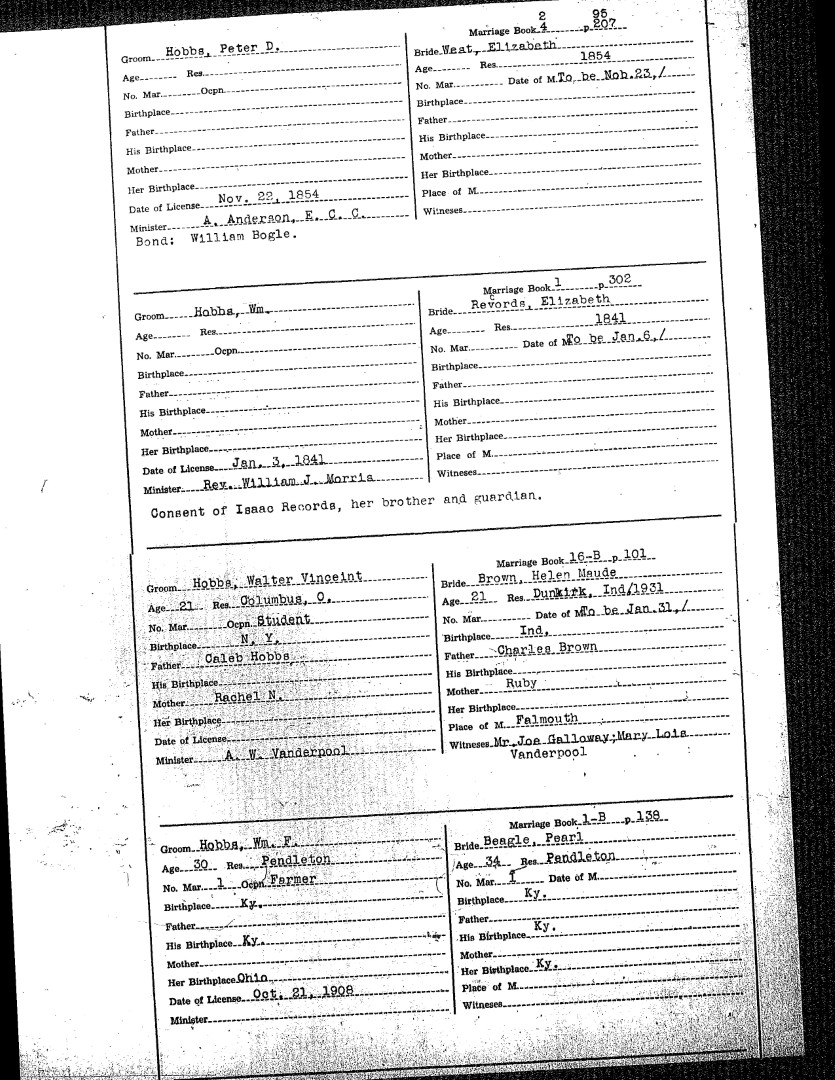 2 95
Marriage Book 4 p 207
Groom Hobbs, Peter D.
Age Res.
No. Mar. Ocpn.
Birthplace
Father
His Birthplace
Mother
Her Birthplace
Date of License Nov. 22, 1854
Minister A. Anderson, E. C. C.
Bond: William Bogle.
Bride West, Elizabeth
Age Res. 1854
No. Mar. Date of M. To be Nob.23,/
Birthplace
Father
His Birthplace
Mother
Her Birthplace
Place of M.
Witneses
Marriage Book 1 p 302
Groom Hobbs, Wm.
Age Res.
No. Mar. Ocpn.
Birthplace
Father
His Birthplace
Mother
Her Birthplace
Date of License Jan. 3, 1841
Minister Rev. William J. Morris
Bride Records, Elizabeth
Age Res. 1841
No. Mar. Date of M. To be Jan.6,/
Birthplace
Father
His Birthplace
Mother
Her Birthplace
Place of M.
Witneses
Consent of Isaac Records, her brother and guardian.
Marriage Book 16-B p 101
Groom Hobbs, Walter Vinceint
Age 21 Res. Columbus, O.
No. Mar. Ocpn. Student
Birthplace N. Y.
Father Caleb Hobbs
His Birthplace
Mother Rachel N.
Her Birthplace
Date of License
Minister A. W. Vanderpool
Bride Brown, Helen Maude
Age 21 Res. Dunkirk, Ind/1931
No. Mar. Date of M. To be Jan.31,/
Birthplace Ind.
Father Charles Brown
His Birthplace
Mother Ruby
Her Birthplace
Place of M. Falmouth
Witneses Mr.Joe Galloway;Mary Lois
Vanderpool
Marriage Book 1-B p 138
Groom Hobbs, Wm. F.
Age 30 Res. Pendleton
No. Mar. 1 Ocpn. Farmer
Birthplace Ky.
Father
His Birthplace Ky.
Mother
Her Birthplace Ohio
Date of License Oct. 21, 1908
Minister
Bride Beagle, Pearl
Age 34 Res. Pendleton
No. Mar. 1 Date of M.
Birthplace Ky.
Father
His Birthplace Ky.
Mother
Her Birthplace Ky.
Place of M.
Witneses